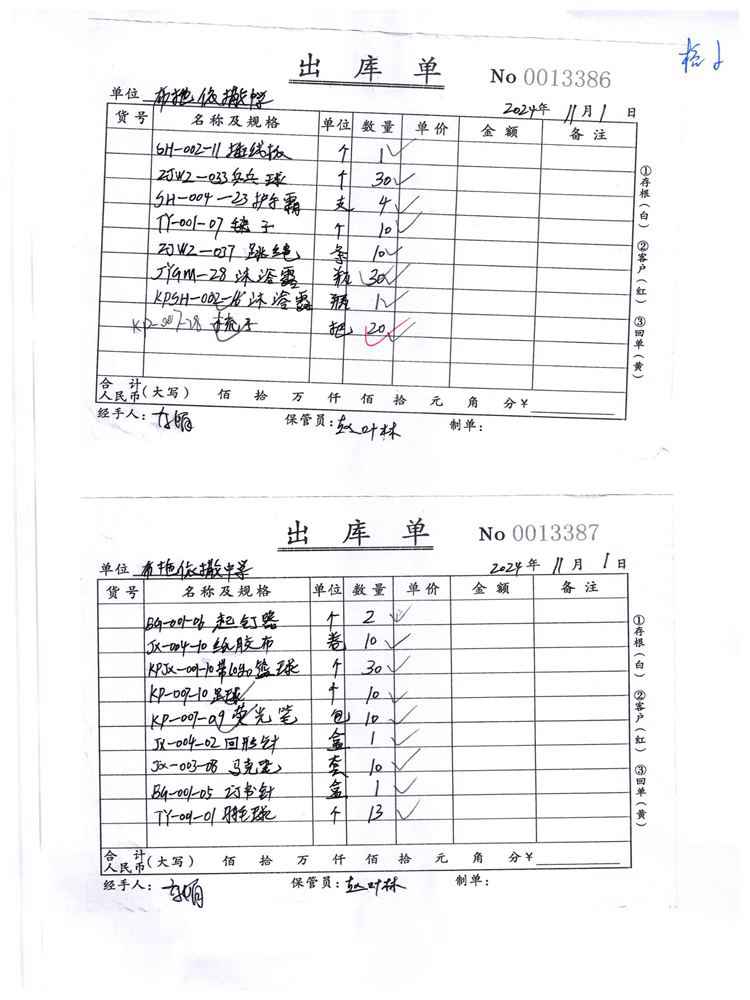 出 库 单
No 0013386
单位 布拖依撒中学
2024年 11月 1日
货号 名称及规格 单位 数量 单价 金额 备注
SH-002-11 插线板 个 1
ZJWZ-033 乒乓球 个 30
SH-004-23 护手霜 支 4
TY-001-07 毽子 个 10
ZJWZ-037 跳绳 条 10
JYGM-28 沐浴露 瓶 30
KPSH-002-15 沐浴露 瓶 1
梳子 把 20
合计人民币(大写) 佰 拾 万 仟 佰 拾 元 角 分¥
经手人: 保管员: 赵叶林 制单:
①存根(白) ②客户(红) ③回单(黄)
出 库 单
No 0013387
单位 布拖依撒中学
2024年 11月 1日
货号 名称及规格 单位 数量 单价 金额 备注
BG-001-06 起钉器 个 2
JX-004-10 纸胶布 卷 10
篮球 个 30
KP-007-10 足球 个 10
KP-007-09 荧光笔 包 10
JX-004-02 回形针 盒 1
JX-003-08 马克笔 套 10
BG-001-05 订书针 盒 1
TY-001-01 羽毛球 个 13
合计人民币(大写) 佰 拾 万 仟 佰 拾 元 角 分¥
经手人: 保管员: 赵叶林 制单:
①存根(白) ②客户(红) ③回单(黄)